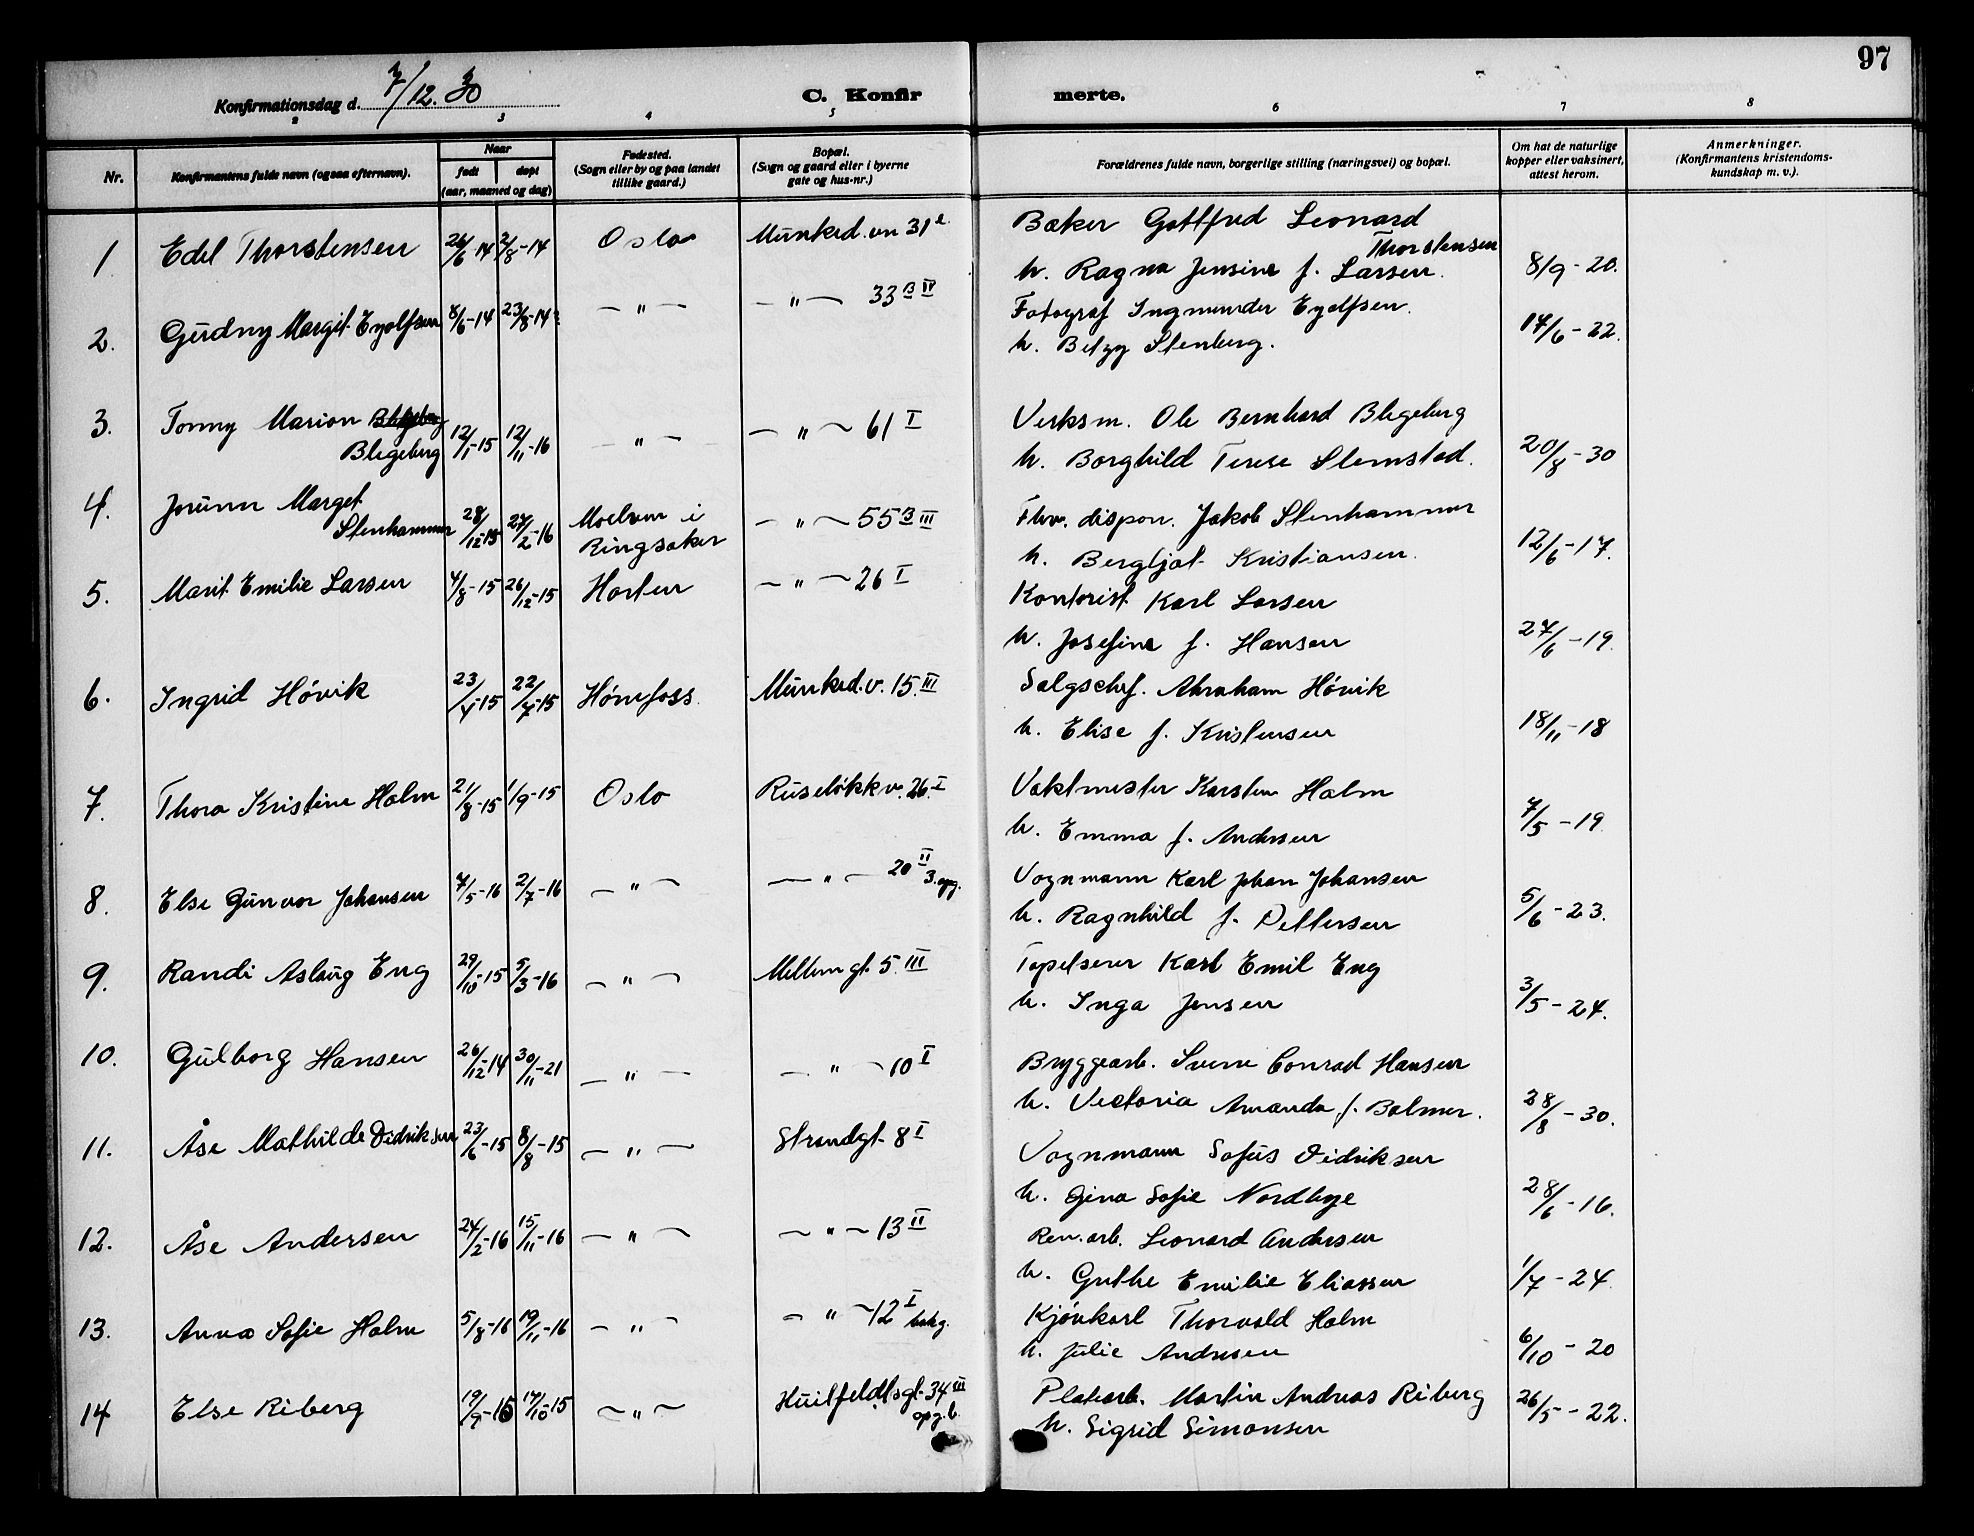 97
Konfirmationsdag d. 7/12. 30
C. Konfirmerte.
2 3 4 5 6 7 8
Nr. Konfirmantens fulde navn (ogsaa efternavn). Naar født døpt (aar, maaned og dag) Fødested. (Sogn eller by og paa landet tillike gaard.) Bopæl. (Sogn og gaard eller i byerne gate og hus-nr.) Forældrenes fulde navn, borgerlige stilling (næringsvei) og bopæl. Om hat de naturlige kopper eller vaksinert, attest herom. Anmerkninger. (Konfirmantens kristendoms-kundskap m. v.).
1 Edel Thorstensen 26/6-14 2/8-14 Oslo Munked.vn 31 Baker Gottfred Leonard Thorstensen
h. Ragna Jensine f. Larsen. 8/9-20.
2. Gudny Margit Eyolfsen 8/6-14 23/8-14 — " — — " — 33 B IV Fotograf Ingmundur Eyolfsen.
h. Betzy Stenberg. 17/6-22.
3. Tonny Marion Blegeberg
Blegeberg 12/1-15 12/11-16 — " — — " — 61 I Verksm. Ole Bernhard Blegeberg
h. Borghild Terese Slemstad. 20/8-30
4. Jorunn Marget
Stenhammer 28/12-15 27/2-16 Moelven i Ringsaker — " — 55 B III Fhv. dispon. Jakob Stenhammer
h. Bergljot Kristiansen. 12/6-17.
5. Marit Emilie Larsen 4/8-15 26/12-15 Horten — " — 26 I Kontorist Karl Larsen
h. Josefine f. Hansen 27/6-19.
6. Ingrid Hövik 23/4-15 22/7-15 Hønefoss. Munked.v. 15. III Salgschef. Abraham Hövik
h. Elise f. Kristensen 18/11-18
7. Thora Kristine Holm 21/8-15 1/9-15 Oslo Ruseløkkv. 26. I Vaktmester Karsten Holm
h. Emma f. Andersen 7/5-19.
8. Else Gunvor Johansen 7/5-16 2/7-16 — " — — " — 20 II 3. opg. Vognmann Karl Johan Johansen
h. Ragnhild f. Pettersen 5/6-23.
9. Randi Aslaug Eng 29/10-15 5/3-16 — " — Mellemgt. 5. III Tapetserer Karl Emil Eng
h. Inga Jensen 3/5-24.
10. Gulborg Hansen 26/12-14 30/11-21 — " — — " — 10 I Bryggearb. Sverre Conrad Hansen
h. Victoria Amanda f. Balmer. 28/8-30.
11. Åse Mathilde Didriksen 23/6-15 8/8-15 — " — Strandgt. 8 I Vognmann Sofus Didriksen
h. Gina Sofie Nordbye 28/6-16.
12. Åse Andersen 24/2-16 15/11-16 — " — — " — 13 II Ren.arb. Leonard Andersen
h. Guthe Emilie Eliassen 1/7-24.
13. Anna Sofie Holm 5/8-16 19/11-16 — " — — " — 12 I bakg. Kjörekarl Thorvald Holm
h. Julie Andresen 6/10-20
14 Else Riberg 19/9-15 17/10-15 — " — Huitfeldtsgt. 34 III opg. b. Platearb. Martin Andreas Riberg
h. Sigrid Simonsen 26/5-22.